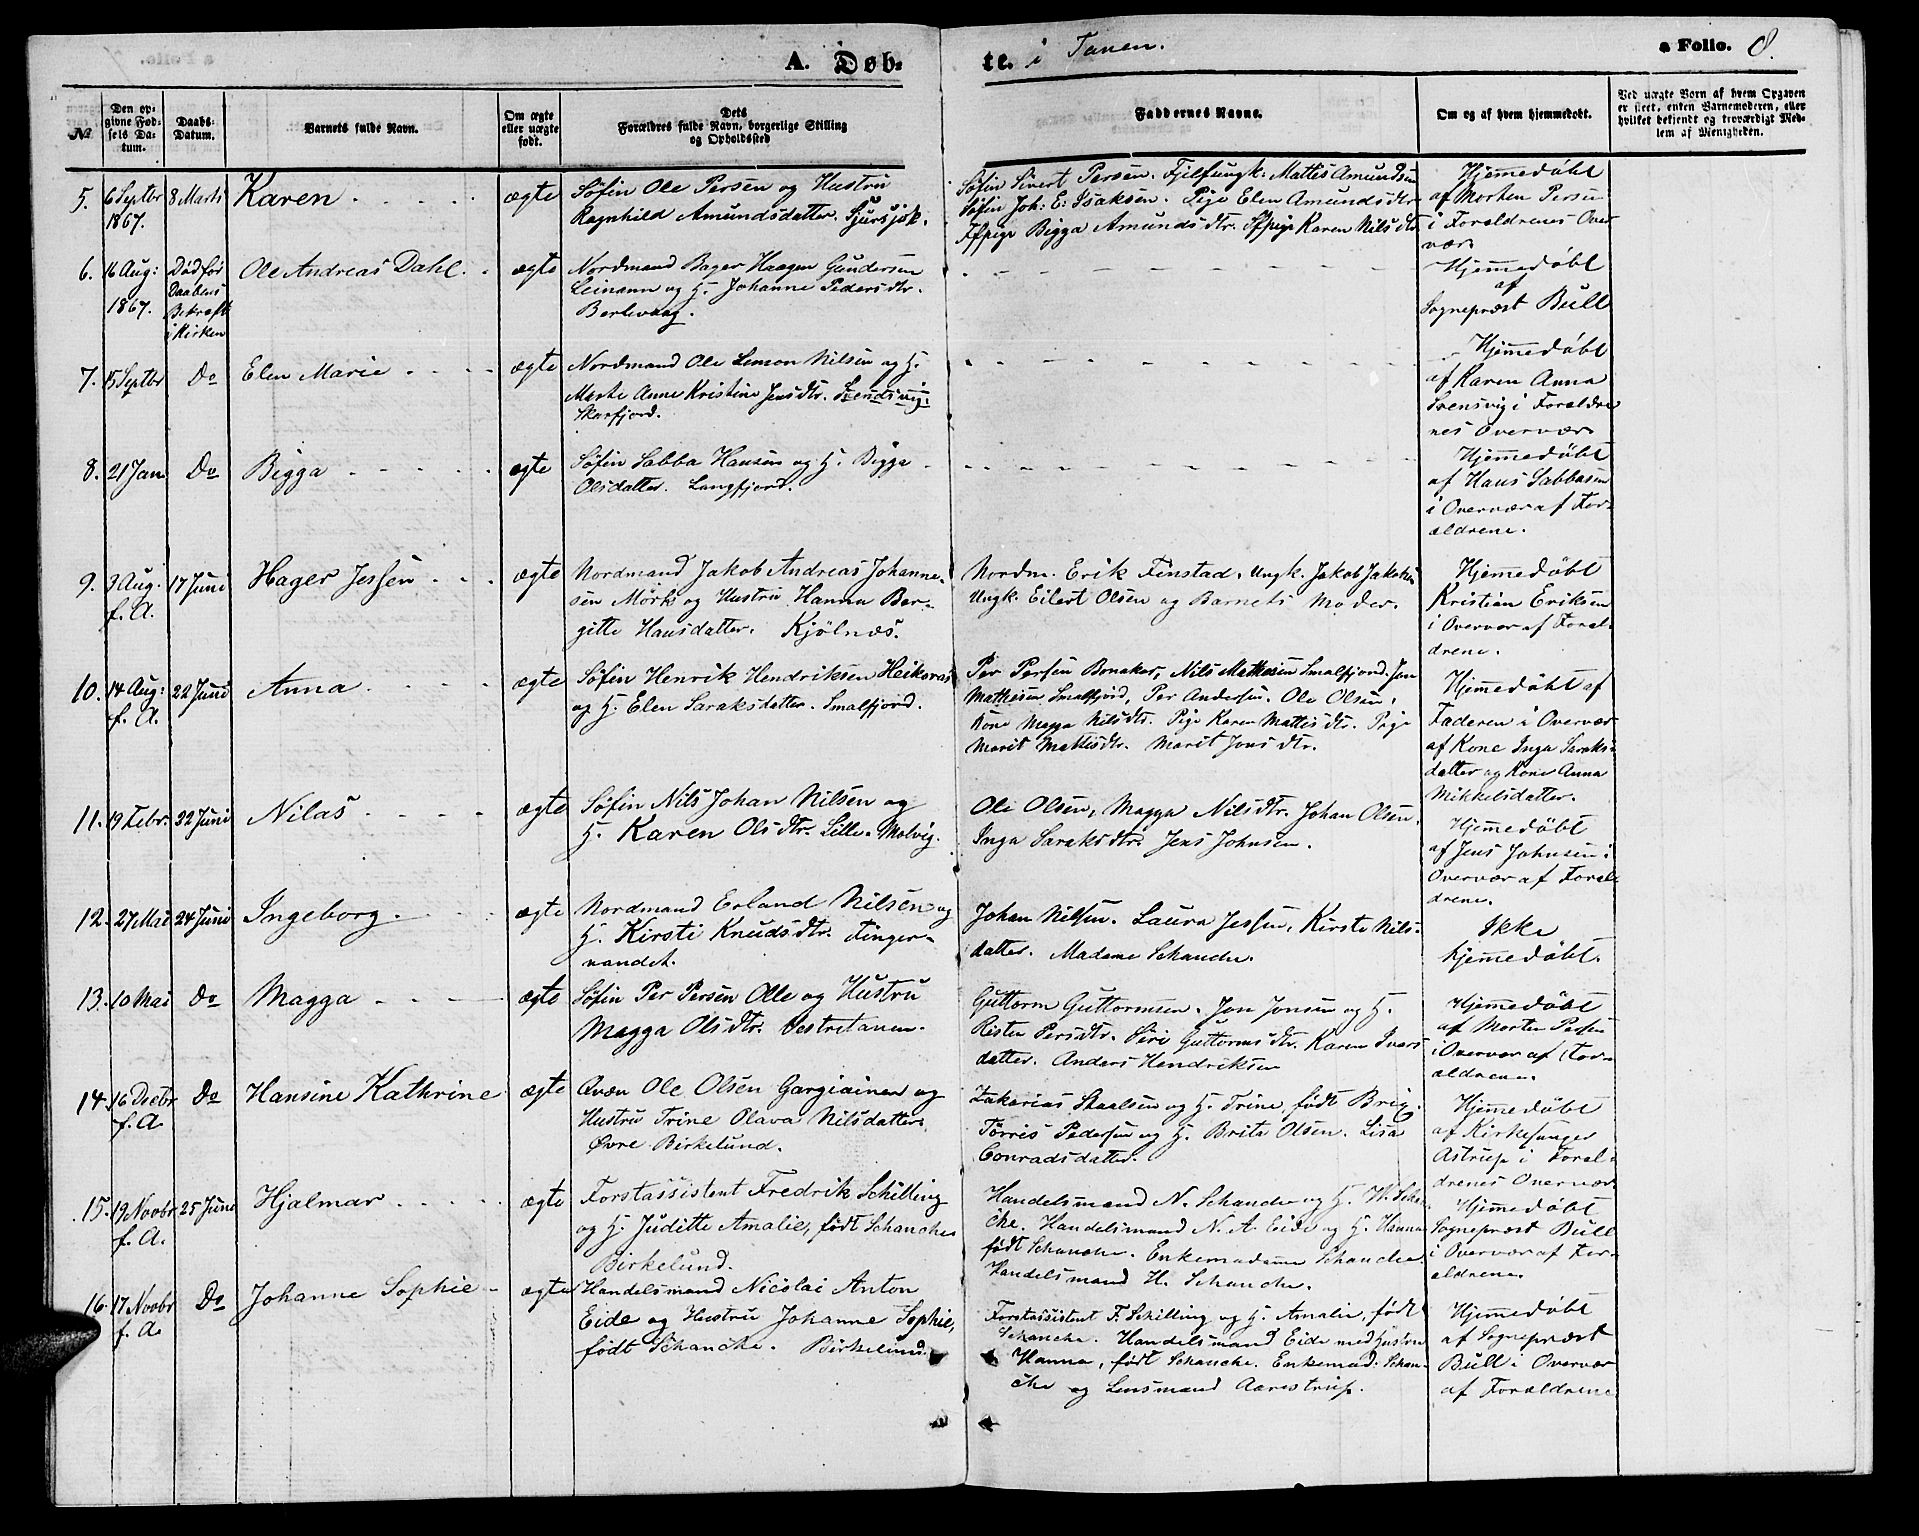 A. Døb-
te. i Tanen.
a Folio. 8.
№
Den op-
givne Fød-
sels Da-
tum.
Daabs-
Datum.
Barnets fulde Navn.
Om ægte
eller uægte
født.
Dets
Forældres fulde Navn, borgerlige Stilling
og Opholdssted
Faddernes Navne.
Om og af hvem hjemmedøbt.
Ved uægte Børn af hvem Opgaven
er skeet, enten Barnemoderen, eller
hvilket bekjendt og troværdigt Med-
lem af Menigheden.
5. 6 Septbr
1867.
8 Marts
Karen
ægte
Søfin Ole Persen og Hustru
Ragnhild Amundsdatter.
Søfin Sivert Persen. Fjelfungk: Mattis Amundsen
Søfin Joh: E: Isaksen. Pige Elen Amundsdtr.
Ffpige Bigga Amundsdtr. Sfpige Karen Nilsdtr.
Hjemmedøbt
af Morten Persen
i Forældrenes Over
vær.
6. 16 Aug:
1867.
Død før
Daabens
Bekræft
i Kirken
Ole Andreas Dahl.
ægte
Nordmand Bager Haagen Gundersen
Leinann og H. Johanne Pedersdtr.
Berlevaag.
Hjemmedøbt
af
Sognepræst Bull
7. 15 Septbr
Do
Elen Marie
ægte
Nordmand Ole Lemon Nilsen og H.
Marte Anne Kristine Jensdtr.
Skarfjord.
Hjemmedøbt
af Karen Anna
Svensvig i Forældre
nes Overvær
8. 21 Jan
Do
Bigga
ægte
Søfin Sabba Hansen og H. Bigga
Olsdatter. Langfjord.
Hjemmedøbt
af Hans Sabbasen
i Overvær af For-
ældrene.
9. 3 Aug.
f. A.
17 Juni
Hager Jessen
ægte
Nordmand Jakob Andreas Johanne-
sen Mørk og Hustru Hanna Ber-
gitte Hansdatter. Kjølnæs.
Nordm. Erik Finstad. Ungk. Jakob Jakobs
Ungk. Eilert Olsen og Barnets Moder.
Hjemmedøbt
Kristian Eriksen
i Overvær af Foræl-
drene.
10. 14 Aug:
f. A.
22 Juni
Anna
ægte
Søfin Henrik Hendriksen Heikoras
og H. Elen Saraksdatter. Smalfjord.
Per Persen Bonakas, Nils Mathisen Smalfjord. Jon
Mathisen Smalfjord, Per Andersen. Ole Olsen,
Kone Magga Nilsdtr. Pige Karen Mattisdtr. Pige
Marit Mattisdtr. Marit Jonsdtr.
Hjemmedøbt af
Faderen i Overvær
af Kone Inga Saraks-
datter og Kone Anna
Mikkelsdatter.
11. 19 Febr.
22 Juni
Nilas
ægte
Søfin Nils Johan Nilsen og
H. Karen Olsdtr. Lille-Molvig.
Ole Olsen, Magga Nilsdtr. Johan Olsen.
Inga Saraksdtr. Jens Johnsen.
Hjemmedøbt
af Jens Johnsen i
Overvær af Foræl
drene.
12. 27 Mai
24 Juni
Ingeborg
ægte
Nordmand Erland Nilsen og
H. Kirsti Knudsdtr. Finger-
vandet.
Johan Nilsen. Laura Jessen, Kirste Nils-
datter. Madame Schanche.
Ikke
hjemmedøbt.
13. 10 Mai
Do
Magga
ægte
Søfin Per Persen Olle og Hustru
Magga Olsdtr. Vestretanen.
Guttorm Guttormsen. Jon Jonsen og H.
Risten Persdtr. Siri Guttormsdtr. Karen Ivers
datter. Anders Hendriksen
Hjemmedøbt
af Morten Persen
i Overvær af For-
ældrene.
14. 16 Decbr
f. A.
Do
Hansine Kathrine
ægte
Qvæn Ole Olsen Gargiainen og
Hustru Trine Olava Nilsdatter.
Øvre Birkelund.
Zakarias Skaalsen og H. Trine, født Brix.
Tørris Pedersen og H. Brita Olsen. Lisa
Conradsdatter.
Hjemmedøbt
af Kirkesanger
Astrup i Foræl-
drenes Overvær
15. 19 Novbr
f. A.
25 Juni
Hjalmar
ægte
Forstassistent Fredrik Schilling
og H. Juditte Amalie, født Schanche
Birkelund.
Handelsmand N. Schanche og H. W. Scha
che. Handelsmand N. A. Eide og H. Hanna
født Schanche. Enkemadame Schanche.
Handelsmand H. Schanche.
Hjemmedøbt
Sognepræst Bull
i Overvær af For-
ældrene.
16. 17 Novbr
f. A.
Do
Johanne Sophie
ægte
Handelsmand Nicolai Anton
Eide og Hustru Johanne Sophie,
født Schanche. Birkelund.
Forstassistent F. Schilling og H. Amalie, født
Schanche. Handelsmand Eide med Hustru
Hanna, født Schanche. Enkemad: Schan-
che og Lensmand Aarestrup.
Hjemmedøbt
af Sognepræst
Bull i Overvær
af Forældrene